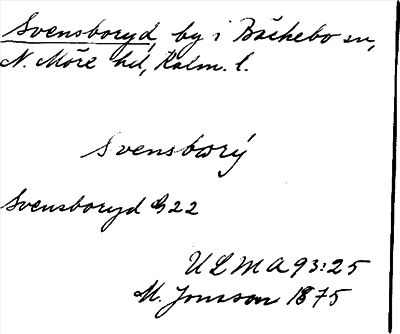 Svensboryd, by i Bäckebo sn,
N. Möre hd, Kalm. l.
Svensborý
Svensboryd G 22
ULMA 93:25
M. Jonsson 1875